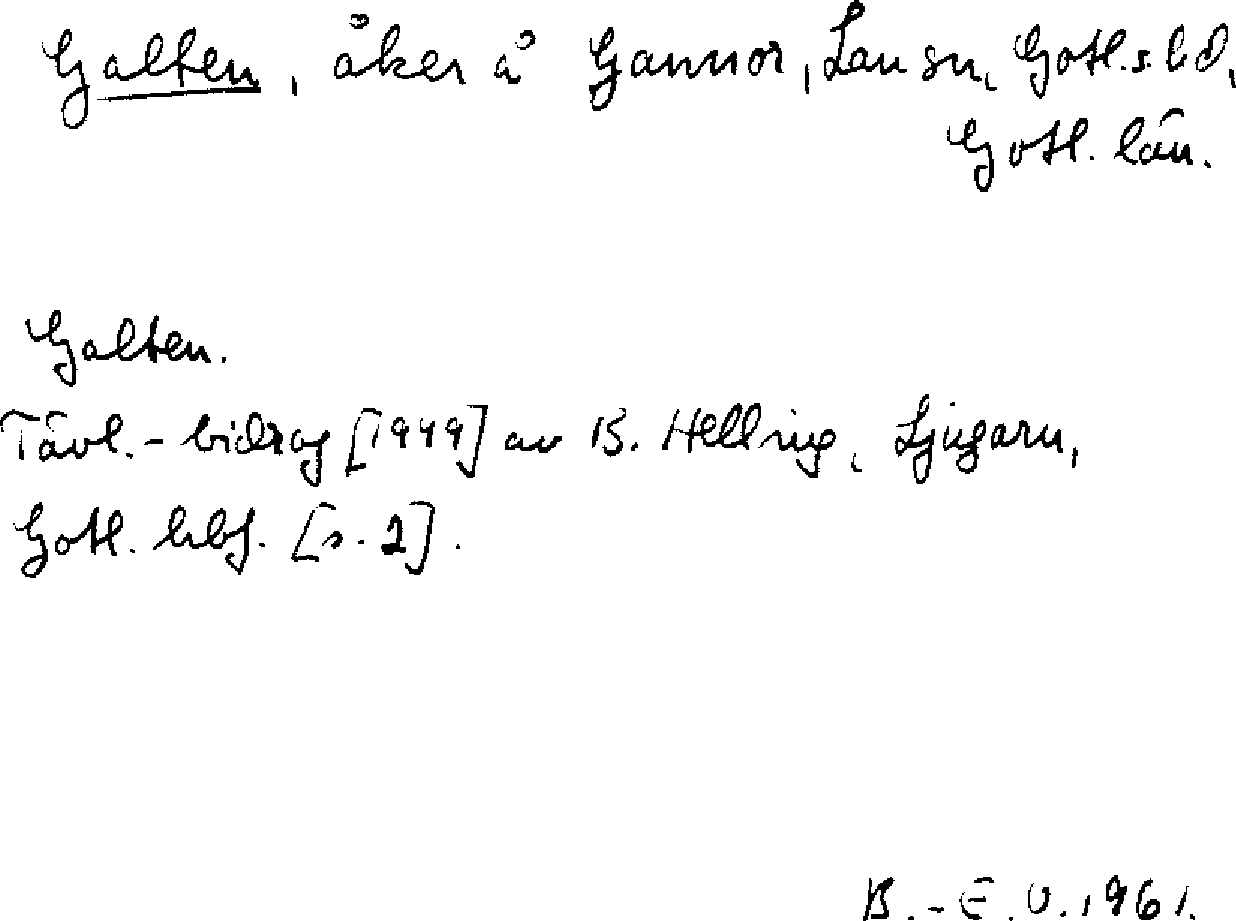 Galten, åker å Gannor, Lau sn, Gotl. s. hd,
Gotl. län.
Galten.
Tävl.-bidrag [1949] av B. Hellvig, Ljugarn,
Gotl. hbf. [s. 2].
B.-E. U. 1961.